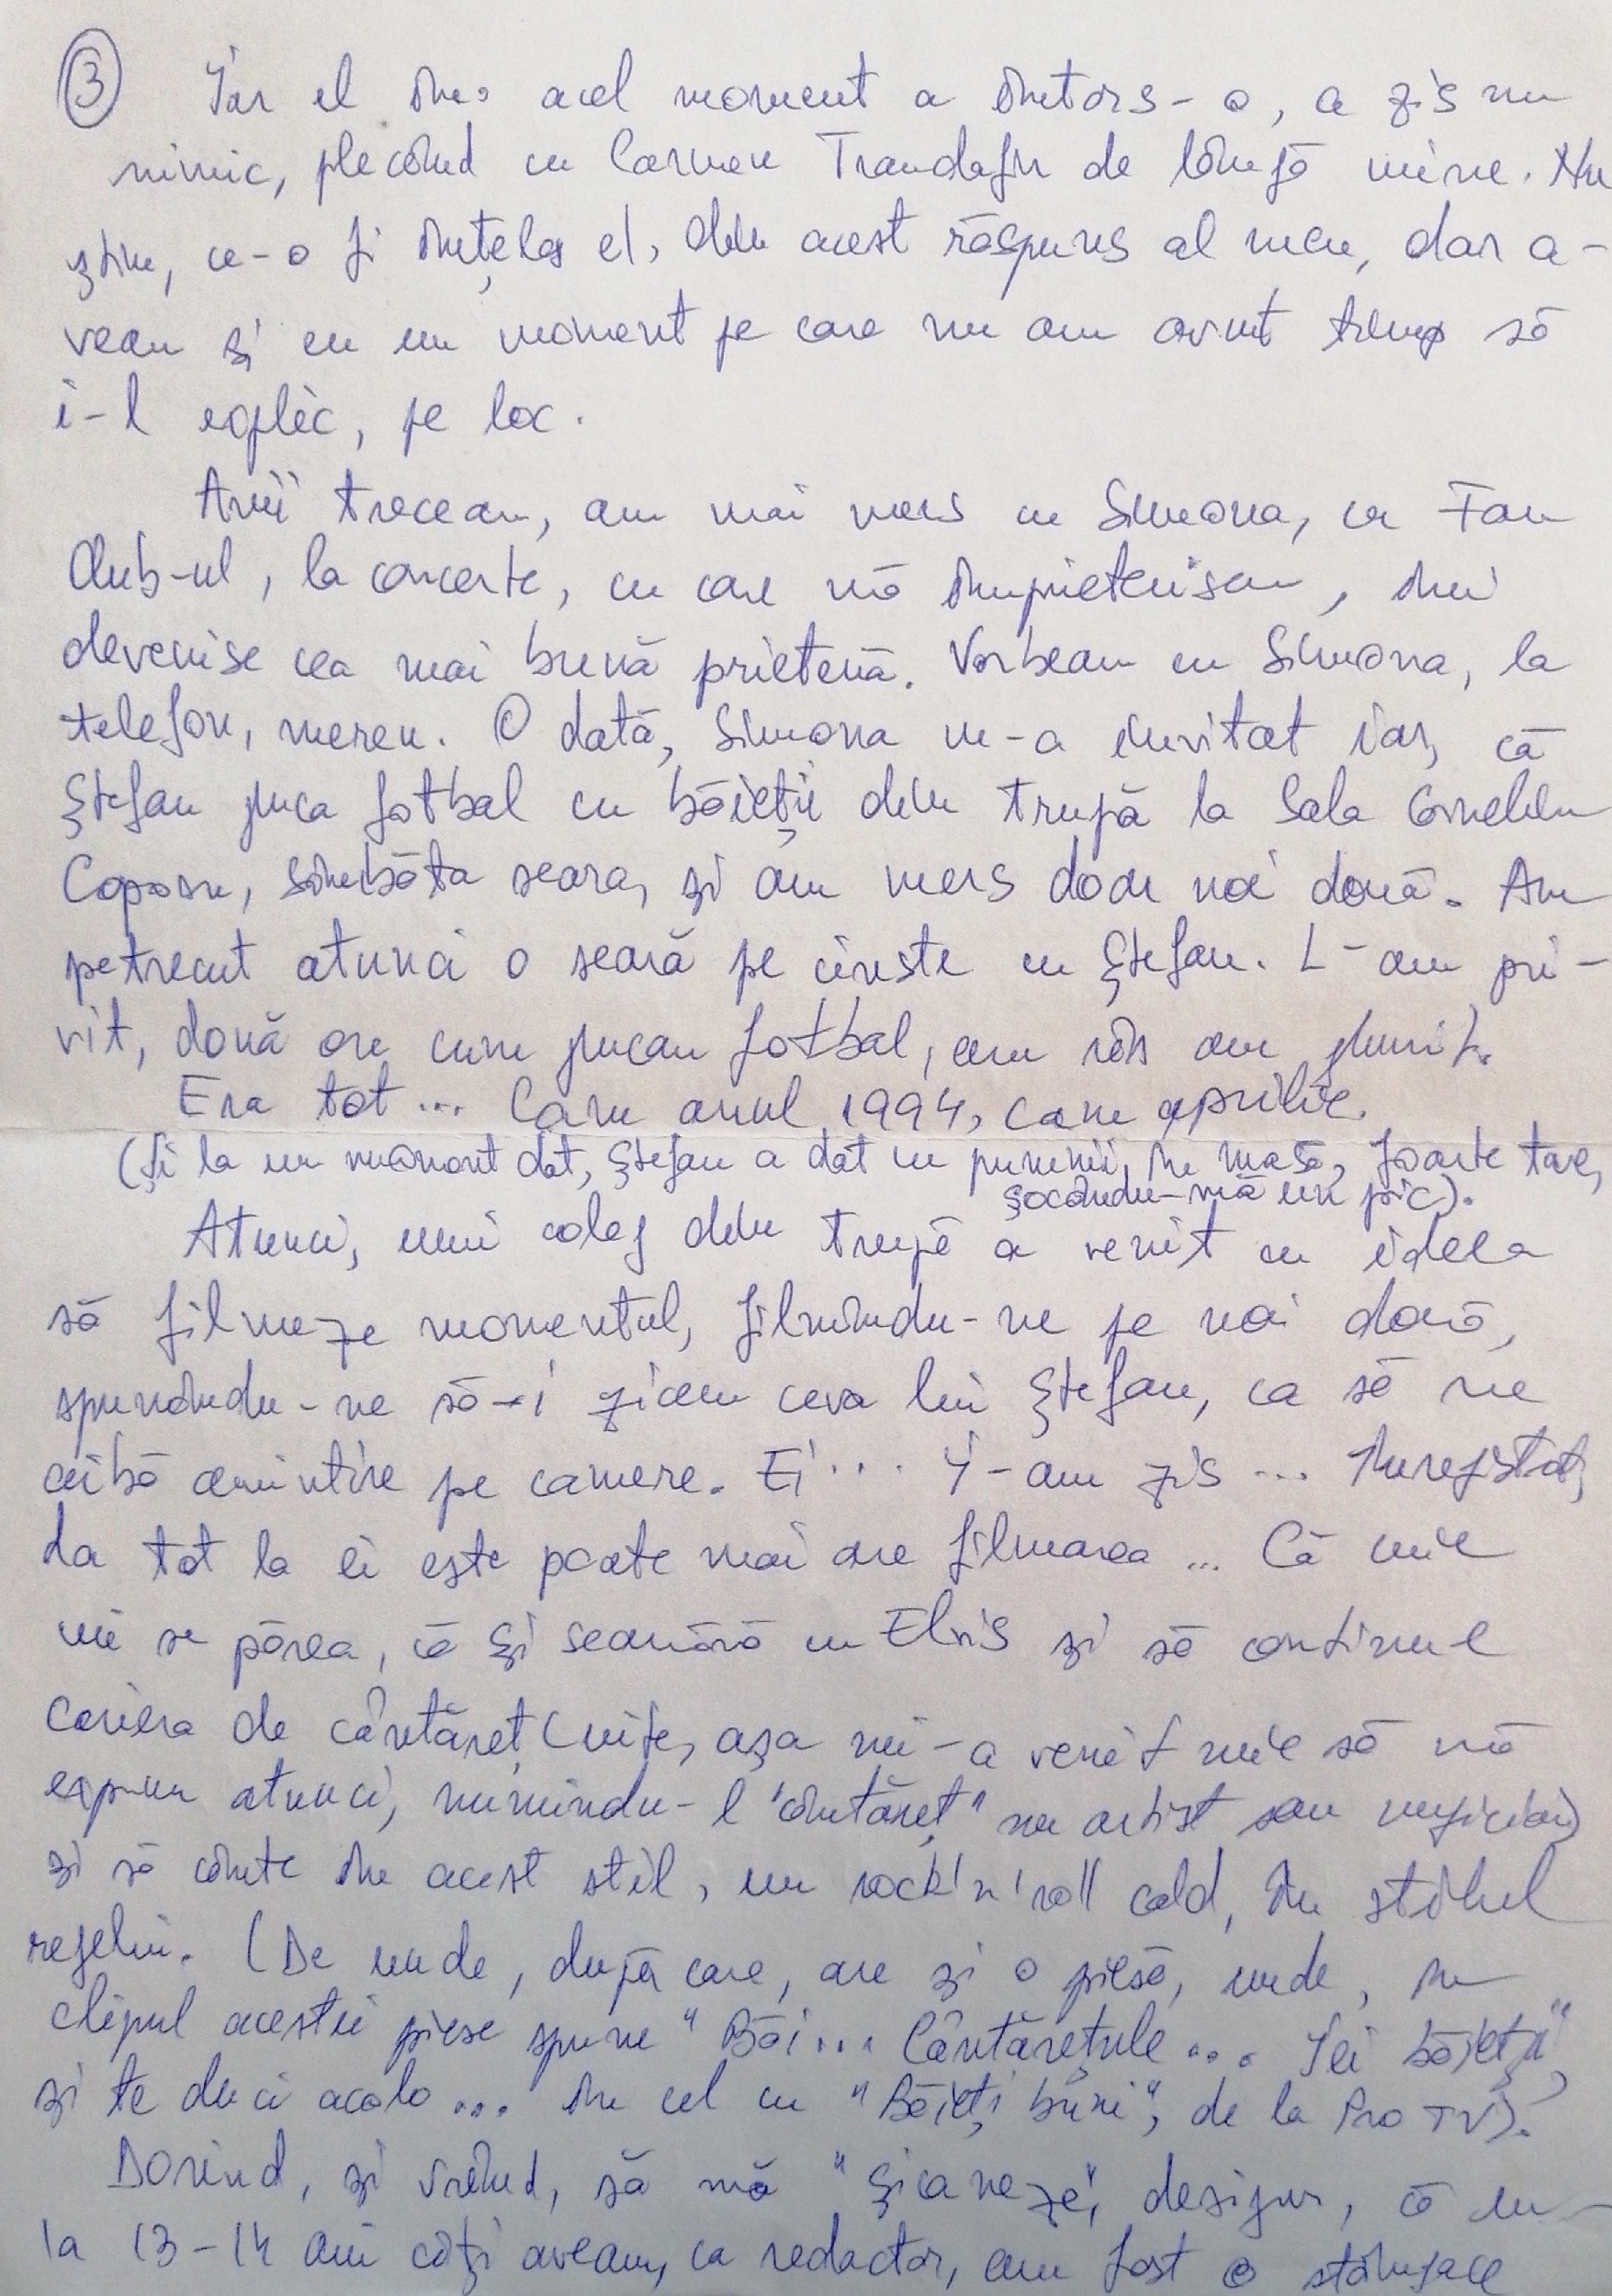 ③ Iar el în acel moment a întors-o, a zis nu
nimic, plecând cu Carmen Trandafir de lângă mine. Nu
știu, ce-o fi înțeles el, din acest răspuns al meu, dar a-
veam și eu un moment pe care nu am avut timp să
i-l explic, pe loc.
Anii treceau, am mai mers cu Simona, cu Fan
Club-ul, la concerte, cu care mă împrietenisem, îmi
devenise cea mai bună prietenă. Vorbeam cu Simona, la
telefon, mereu. O dată, Simona m-a invitat iar, că
Ștefan juca fotbal cu băieții din trupă la Sala Corneliu
Coposu, sâmbăta seara, și am mers doar noi două. Am
petrecut atunci o seară pe cinste cu Ștefan. L-am pri-
vit, două ore cum jucau fotbal, am râs am glumit.
Era tot... Cam anul 1994, cam aprilie.
(Și la un moment dat, Ștefan a dat cu pumnii, în masă, foarte tare,
șocându-mă un pic).
Atunci, unui coleg din trupă a venit cu ideea
să filmeze momentul, filmându-ne pe noi două,
spunându-ne să-i zicem ceva lui Ștefan, ca să ne
aibă amintire pe camere. Ei... I-am zis... Înregistrat,
da tot la ei este poate mai are filmarea... Că mie
mi se părea, că și seamănă cu Elvis și să continue
cariera de cântăreț (uite, așa mi-a venit mie să mă
expun atunci, numindu-l "cântăreț" nu artist sau muzician)
și să cânte în acest stil, un rock'n'roll cald, în stilul
regelui. (De unde, după care, are și o piesă, unde, în
clipul acestei piese spune "Băi... Cântărețule... Iei băieții"
și te duci acolo... În cel cu "Băieți buni", de la Pro TV).
Dorind, și vrând, să mă "șicaneze", desigur, că eu
la 13-14 ani câți aveam, ca redactor, am fost o stângace